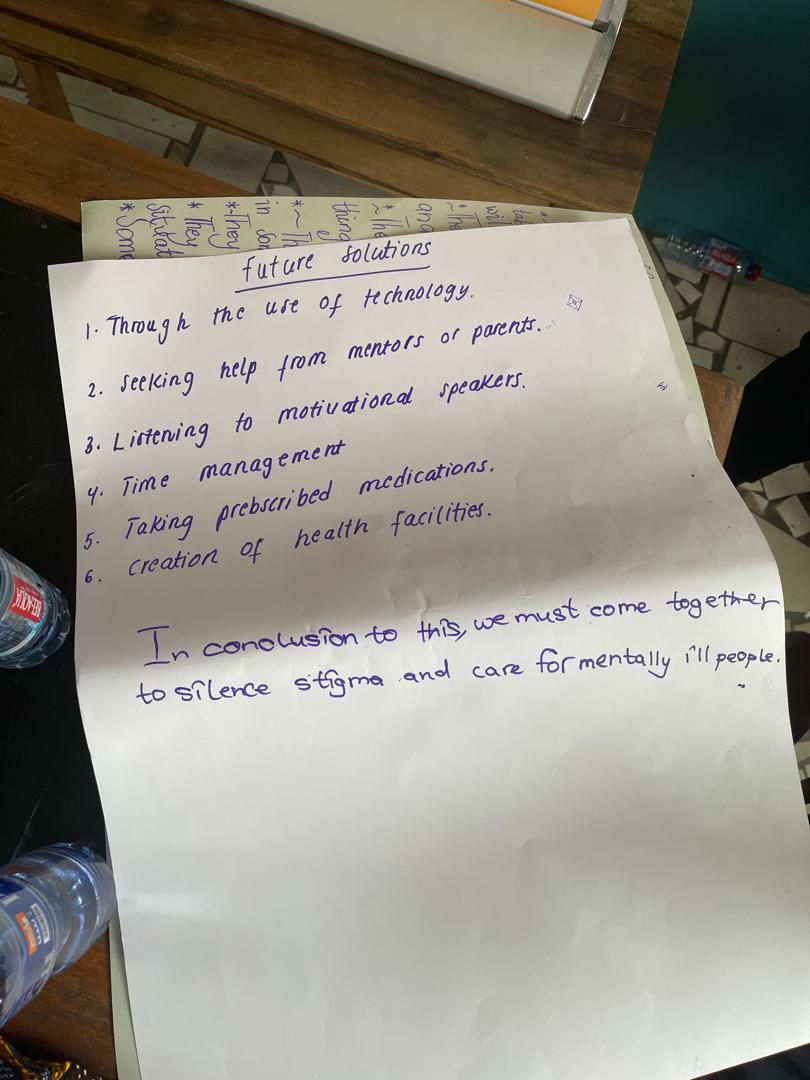 future solutions
1. Through the use of technology.
2. seeking help from mentors or parents.
3. Listening to motivational speakers.
4. Time management
5. Taking prebscribed medications.
6. creation of health facilities.
In conclusion to this, we must come together
to silence stigma and care for mentally ill people.
* Some
* They
* ~They
in som
* ~ Th
thing
* The
BEL-AQUA